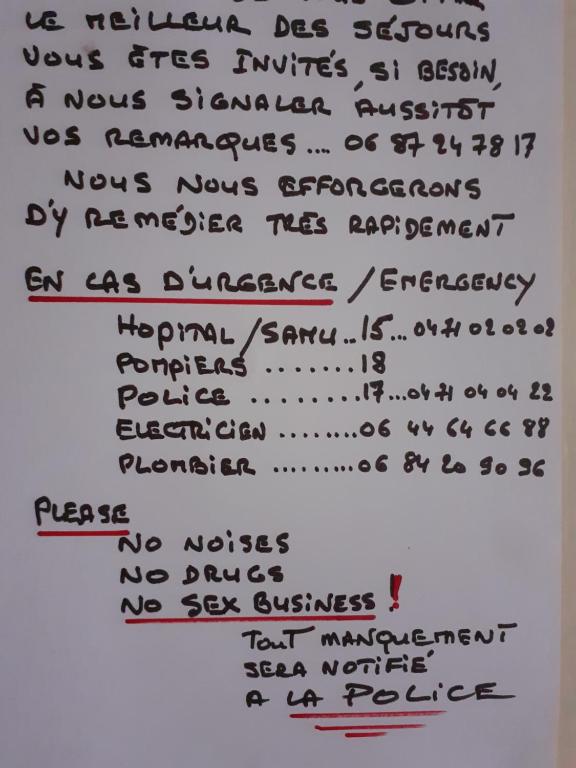 LE MEILLEUR DES SÉJOURS
VOUS ÊTES INVITÉS, SI BESOIN,
À NOUS SIGNALER AUSSITÔT
VOS REMARQUES .... 06 87 24 78 17
NOUS NOUS EFFORCERONS
D'Y REMÉDIER TRÈS RAPIDEMENT
EN CAS D'URGENCE / EMERGENCY
HOPITAL / SAMU .. 15 ... 04 71 02 02 02
POMPIERS ....... 18
POLICE ......... 17 ... 04 71 04 04 22
ELECTRICIEN ........ 06 44 64 66 88
PLOMBIER ......... 06 84 20 90 96
PLEASE
NO NOISES
NO DRUGS
NO SEX BUSINESS !
TOUT MANQUEMENT
SERA NOTIFIÉ
A LA POLICE